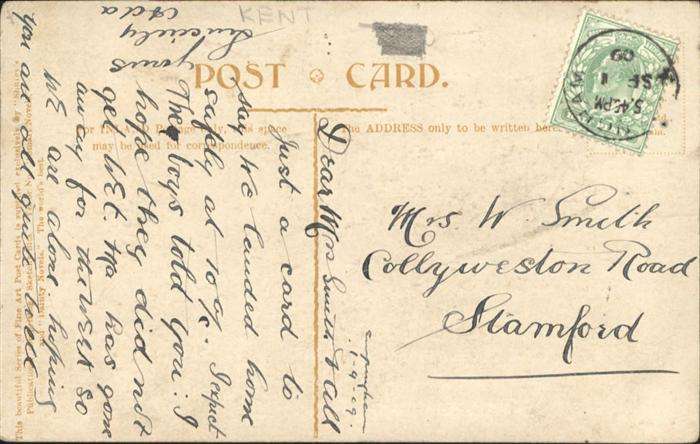 KENT
POST CARD.
For INLAND Postage only, this space
may be used for correspondence.
The ADDRESS only to be written here.
5.45 PM
SP 1
09
Mrs W. Smith
Collyweston Road
Stamford
1-9-09
Dear Mrs Smith & all
Just a card to
say we landed home
safely at 10 o/c. I expect
The boys told you. I
hope they did not
get wet. Mr has gone
away for the week so
we are alone hoping
you are all good
Yours
Sincerely
Ada
This beautiful Series of Fine Art Post Cards is supplied exclusively by